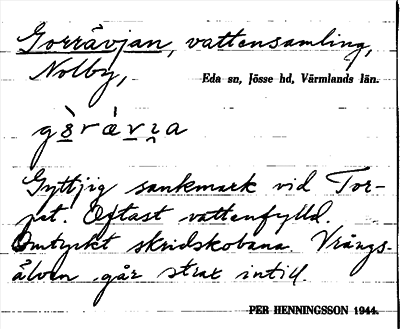 Gorråvjan, vattensamling,
Nolby,
Eda sn, Jösse hd, Värmlands län.
Gyttjig sankmark vid Tor-
pet. Oftast vattenfylld.
Omtyckt skridskobana. Vrångs-
älven går strax intill.
PER HENNINGSSON 1944.